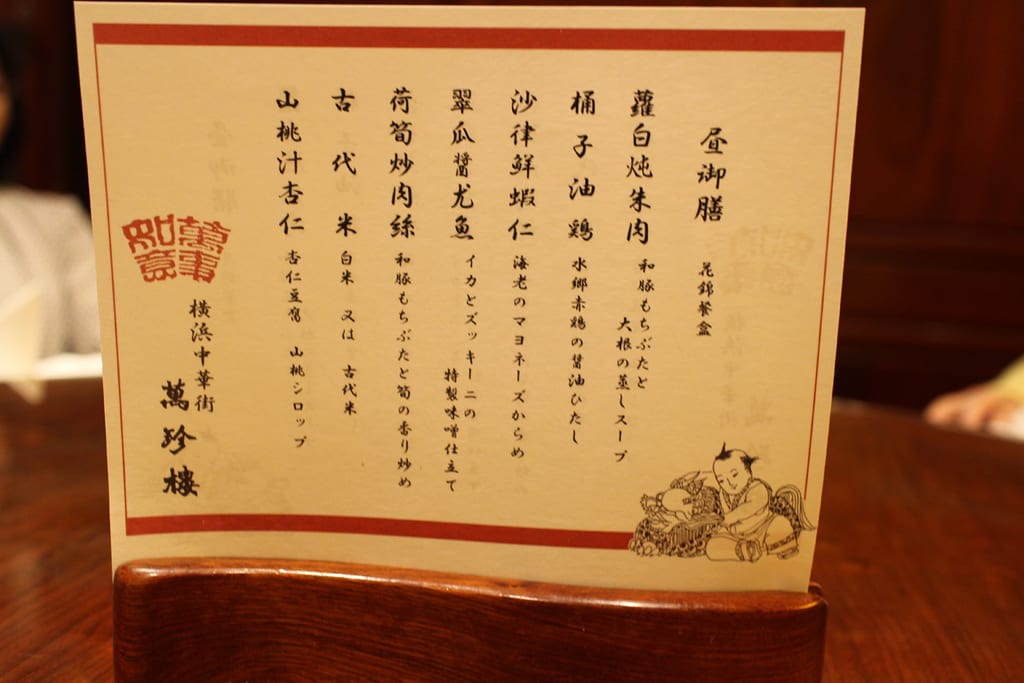 昼御膳 花錦餐盒
蘿白炖朱肉 和豚もちぶたと
大根の蒸しスープ
桶子油鶏 水郷赤鶏の醤油ひたし
沙律鮮蝦仁 海老のマヨネーズからめ
翠瓜醬尤魚 イカとズッキーニの
特製味噌仕立て
荷筍炒肉絲 和豚もちぶたと筍の香り炒め
古代米 白米 又は 古代米
山桃汁杏仁 杏仁豆腐 山桃シロップ
萬事
如意
横浜中華街
萬珍樓